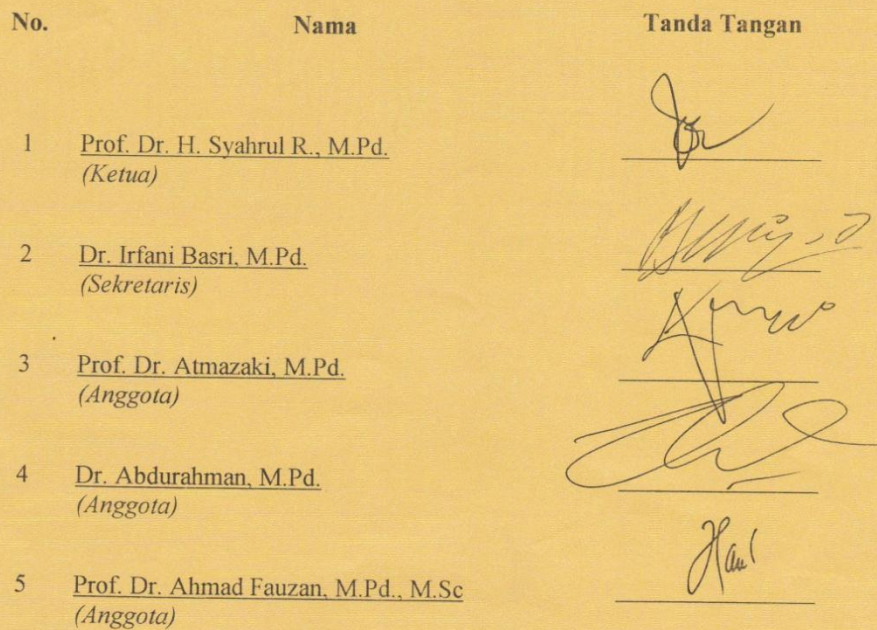 No. Nama Tanda Tangan
1 Prof. Dr. H. Syahrul R., M.Pd.
(Ketua)
2 Dr. Irfani Basri, M.Pd.
(Sekretaris)
3 Prof. Dr. Atmazaki, M.Pd.
(Anggota)
4 Dr. Abdurahman, M.Pd.
(Anggota)
5 Prof. Dr. Ahmad Fauzan, M.Pd., M.Sc
(Anggota)